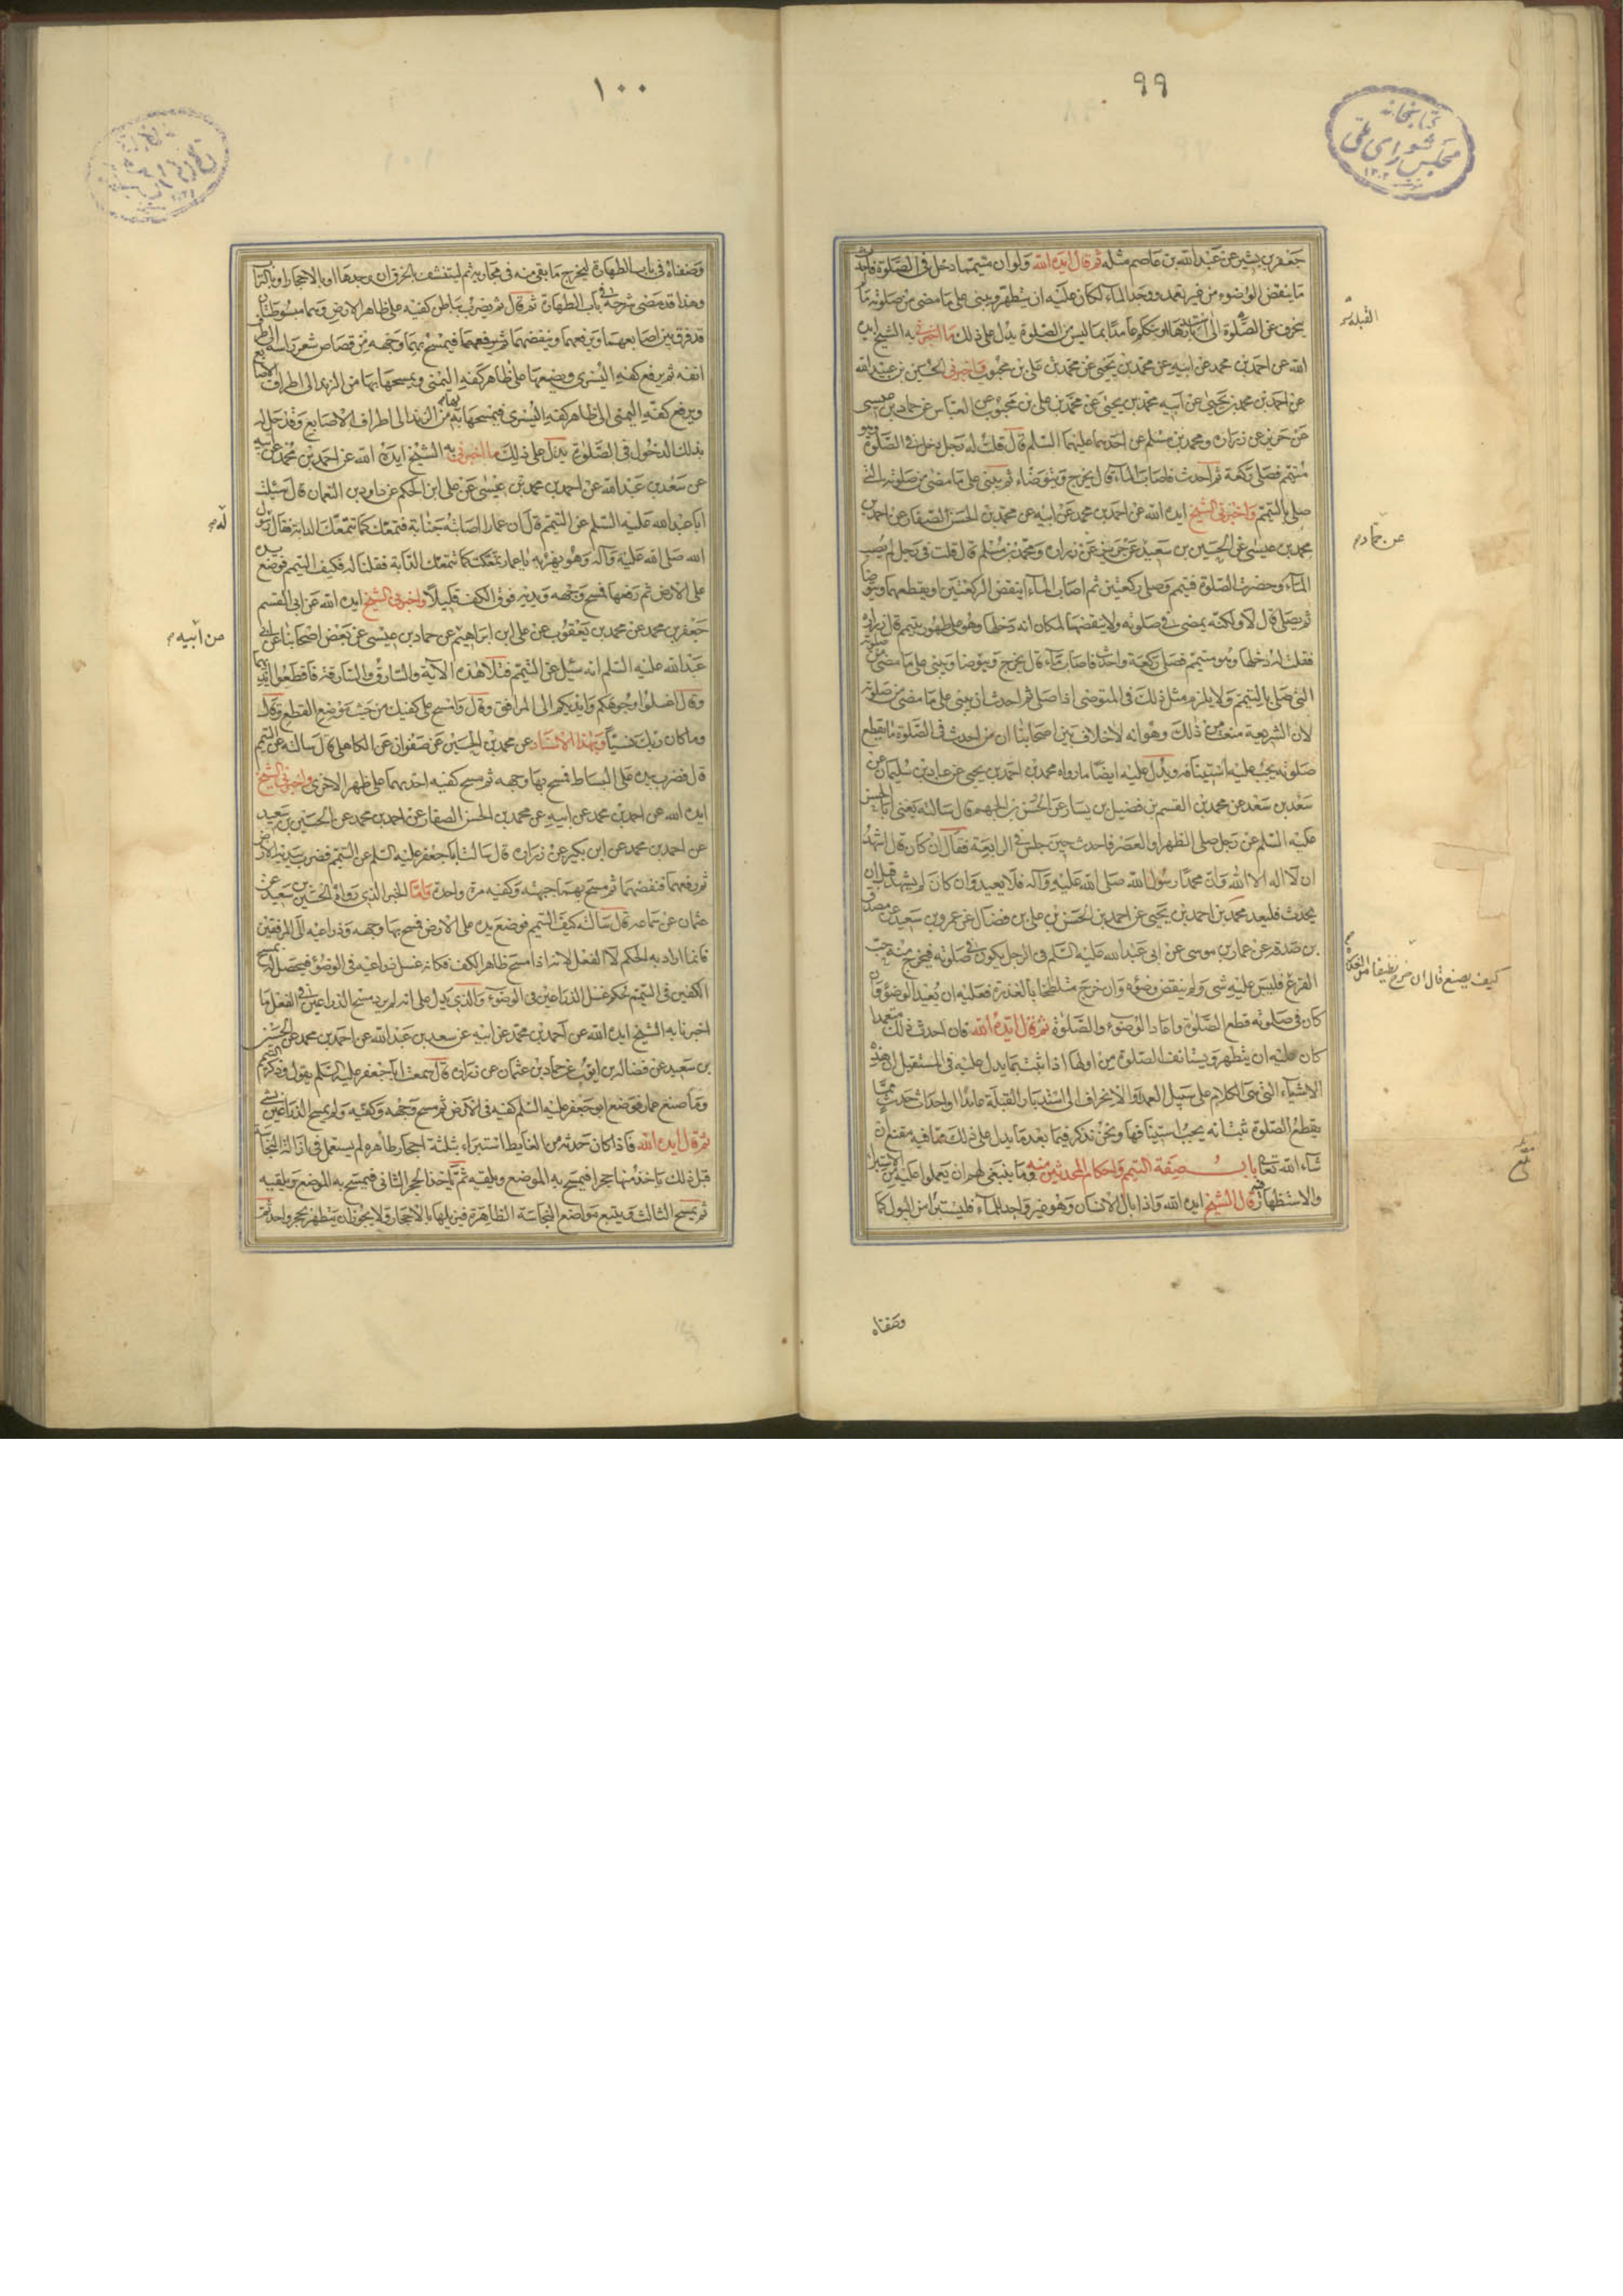 ٩٩
كتابخانه
مجلس شورای ملی
جعفر بن بشير عن عبد الله بن عاصم مثله ثم قال ايده الله ولو ان متيمما دخل فى الصلوة فاحدث
ما ينقض الوضوء من غير تعمد ووجد الماء لكان عليه ان يتطهر ويبنى على ما مضى من صلوته ما لم
ينحرف عن الصلوة الى استدبارها او يتكلم عامدا بما ليس من الصلوة يدل على ذلك ما اخبرنى به الشيخ ايده
الله عن احمد بن محمد عن ابيه عن محمد بن يحيى عن محمد بن على بن محبوب واخبرنى الحسين بن عبيد الله
عن احمد بن محمد بن يحيى عن ابيه محمد بن يحيى عن محمد بن على بن محبوب عن العباس عن حماد بن عيسى
عن حريز عن زرارة ومحمد بن مسلم عن احدهما عليهما السلم قال قلت له رجل دخل فى الصلوة وهو
متيمم فصلى ركعة ثم احدث فاصاب الماء قال يخرج ويتوضاء ثم يبنى على ما مضى من صلوته التى
صلى بالتيمم واخبرنى الشيخ ايده الله عن احمد بن محمد عن ابيه عن محمد بن الحسن الصفار عن احمد بن
محمد بن عيسى عن الحسين بن سعيد عن حريز عن زرارة ومحمد بن مسلم قال قلت فى رجل لم يصب
الماء وحضرت الصلوة فتيمم وصلى ركعتين ثم اصاب الماء اينقض الركعتين او يقطعهما ويتوضا
ثم يصلى قال لا ولكنه يمضى فى صلوته ولا ينقضها لمكان انه دخلها وهو على طهور بتيمم قال زرارة
فقلت له دخلها وهو متيمم فصلى ركعة واحدث فاصاب ماء قال يخرج ويتوضا ويبنى على ما مضى من صلوته
التى صلى بالتيمم ولا يلزم مثل ذلك فى المتوضى اذا صلى ثم احدث ان يبنى على ما مضى من صلوته
لان الشريعة منعت من ذلك وهو انه لا خلاف بين اصحابنا ان من احدث فى الصلوة ما يقطع
صلوته يجب عليه استينافه ويدل عليه ايضا ما رواه محمد بن احمد بن يحيى عن عباد بن سليمان عن
سعد بن سعد عن محمد بن القسم بن فضيل بن يسار عن الحسن بن الجهم قال سالته يعنى ابا الحسن
عليه السلم عن رجل صلى الظهر او العصر فاحدث حين جلس فى الرابعة فقال ان كان قال اشهد
ان لا اله الا الله وان محمدا رسول الله صلى الله عليه وآله فلا يعيد وان كان لم يشهد قبل ان
يحدث فليعد محمد بن احمد بن يحيى عن احمد بن الحسن بن على بن فضال عن عمرو بن سعيد عن مصدق
بن صدقة عن عمار بن موسى عن ابى عبد الله عليه السلم فى الرجل يكون فى صلوته فيخرج منه حب
القرع فليس عليه شى ولم ينقض وضوءه وان خرج متلطخا بالعذرة فعليه ان يعيد الوضوء وان
كان فى صلوته قطع الصلوة واعاد الوضوء والصلوة ثم قال ايده الله فان احدث ذلك متعمدا
كان عليه ان يتطهر ويستانف الصلوة من اولها اذا ثبت بما يدل عليه فى المستقبل ان هذه
الاشياء التى هى الكلام على سبيل العمد او الانحراف الى استدبار القبلة عامدا او احداث حدث مما
يقطع الصلوة ثبت انه يجب استينافها ونحن نذكر فيما بعد ما يدل على ذلك مما فيه مقنع ان
شاء الله تعالى باب صفة التيمم واحكام المحدثين منه وما ينبغى لهم ان يعملوا عليه من الاستبراء
والاستظهار قال الشيخ ايده الله واذا بال الانسان وهو غير واجد للماء فليستبرأ من البول كما
القبلة
عن حماد
كيف يصنع قال ان خرج نظيفا من العذرة
وصفناه
١٠٠
وصفناه فى باب الطهارة ليخرج ما بقى منه فى مجاريه ثم ليتنشف بالخرق ان وجدها او بالاحجار او بالتراب
وهذا قد مضى شرحه فى باب الطهارة ثم قال ثم يضرب بباطن كفيه على ظاهر الارض وهما مبسوطتان
قد فرق بين اصابعهما ويرفعهما وينفضهما ثم يرفعهما فيمسح بهما وجهه من قصاص شعر راسه الى طرف
انفه ثم يرفع كفه اليسرى ويضعها على ظاهر كفه اليمنى ويمسحها بها من الزند الى اطراف الاصابع
ويرفع كفه اليمنى الى ظاهر كفه اليسرى فيمسحها بها من الزند الى اطراف الاصابع وقد حل له
بذلك الدخول فى الصلوة يدل على ذلك ما اخبرنى به الشيخ ايده الله عن احمد بن محمد عن ابيه
عن سعد بن عبد الله عن احمد بن محمد بن عيسى عن على ابن الحكم عن داود بن النعمان قال سئلت
ابا عبد الله عليه السلم عن التيمم قال ان عمارا اصابته جنابة فتمعك كما تتمعك الدابة فقال رسول
الله صلى الله عليه وآله وهو يهزء به يا عمار تمعكت كما تتمعك الدابة فقلنا له فكيف التيمم فوضع يديه
على الارض ثم رفعها فمسح وجهه ويديه فوق الكف قليلا واخبرنى الشيخ ايده الله عن ابى القسم
جعفر بن محمد عن محمد بن يعقوب عن على ابن ابراهيم عن حماد بن عيسى عن بعض اصحابنا عن ابى
عبد الله عليه السلم انه سئل عن التيمم فتلا هذه الآية والسارق والسارقة فاقطعوا ايديهما
وقال اغسلوا وجوهكم وايديكم الى المرافق وقال وامسح على كفيك من حيث موضع القطع وقال
وما كان ربك نسيا وبهذا الاسناد عن محمد بن الحسين عن صفوان عن الكاهلى قال سالته عن التيمم
قال فضرب بيده على البساط فمسح بها وجهه ثم مسح كفيه احديهما على ظهر الاخرى واخبرنى الشيخ
ايده الله عن احمد بن محمد عن ابيه عن محمد بن الحسن الصفار عن احمد بن محمد عن الحسين بن سعيد
عن احمد بن محمد عن ابن بكير عن زرارة قال سالت ابا جعفر عليه السلم عن التيمم فضرب بيديه الارض
ثم رفعهما فنفضهما ثم مسح بهما جبهته وكفيه مرة واحدة فاما الخبر الذى رواه الحسين بن سعيد عن
عثمان عن سماعة قال سالته كيف التيمم فوضع يده على الارض فمسح بها وجهه وذراعيه الى المرفقين
فانما اراد به الحكم لا الفعل لانه اذا مسح ظاهر الكف فكانه غسل ذراعيه فى الوضوء فيحصل له بمسح
الكفين فى التيمم حكم غسل الذراعين فى الوضوء والذى يدل على انه لم يرد مسح الذراعين فى الفعل ما
اخبرنا به الشيخ ايده الله عن احمد بن محمد عن ابيه عن سعد بن عبد الله عن احمد بن محمد عن الحسين
بن سعيد عن فضالة بن ايوب عن حماد بن عثمان عن زرارة قال سمعت ابا جعفر عليه السلم يقول وذكر التيمم
وما صنع عمار فوضع ابو جعفر عليه السلم كفيه فى الارض ثم مسح وجهه وكفيه ولم يمسح الذراعين بشى
ثم قال ايده الله فاذا كان حدثه من الغايط استبراء بثلثة احجار طاهرة لم يستعمل فى ازالة النجاسة
قبل ذلك ياخذ منها حجرا فيمسح به الموضع ويلقيه ثم ياخذ الحجر الثانى فيمسح به الموضع ويلقيه
ثم يمسح الثالث ويتبع مواضع النجاسة الظاهرة فيزيلها بالاحجار ولا يجوز ان يتطهر بحجر واحد ثم
له
عن ابيه